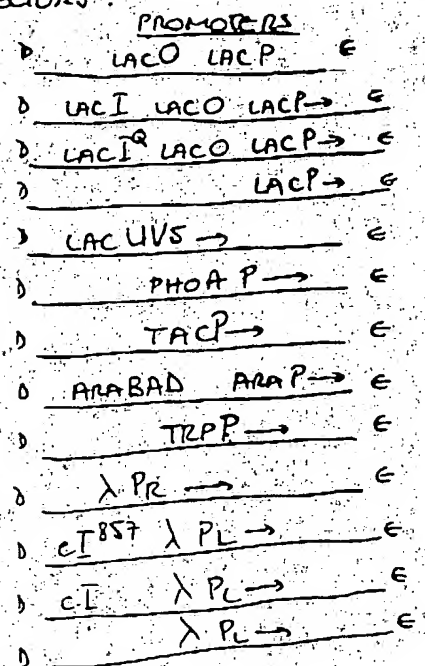 PROMOTERS
D LACO LACP E
D LAC I LACO LACP→ E
D LAC I^Q LACO LACP→ E
D LACP→ E
D LAC UV5 → E
D PHOA P → E
D TACP→ E
D ARABAD ARA P→ E
D TRP P → E
D λ PR → E
D cI^857 λ PL → E
D cI λ PL → E
D λ PL → E